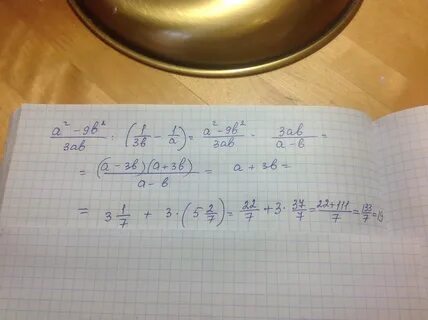 a² - 9b² / 3ab : (1/3b - 1/a) = a² - 9b² / 3ab · 3ab / a - b =
= (a - 3b)(a + 3b) / a - b = a + 3b =
= 3 1/7 + 3 · (5 2/7) = 22/7 + 3 · 37/7 = 22+111 / 7 = 133/7 = 19